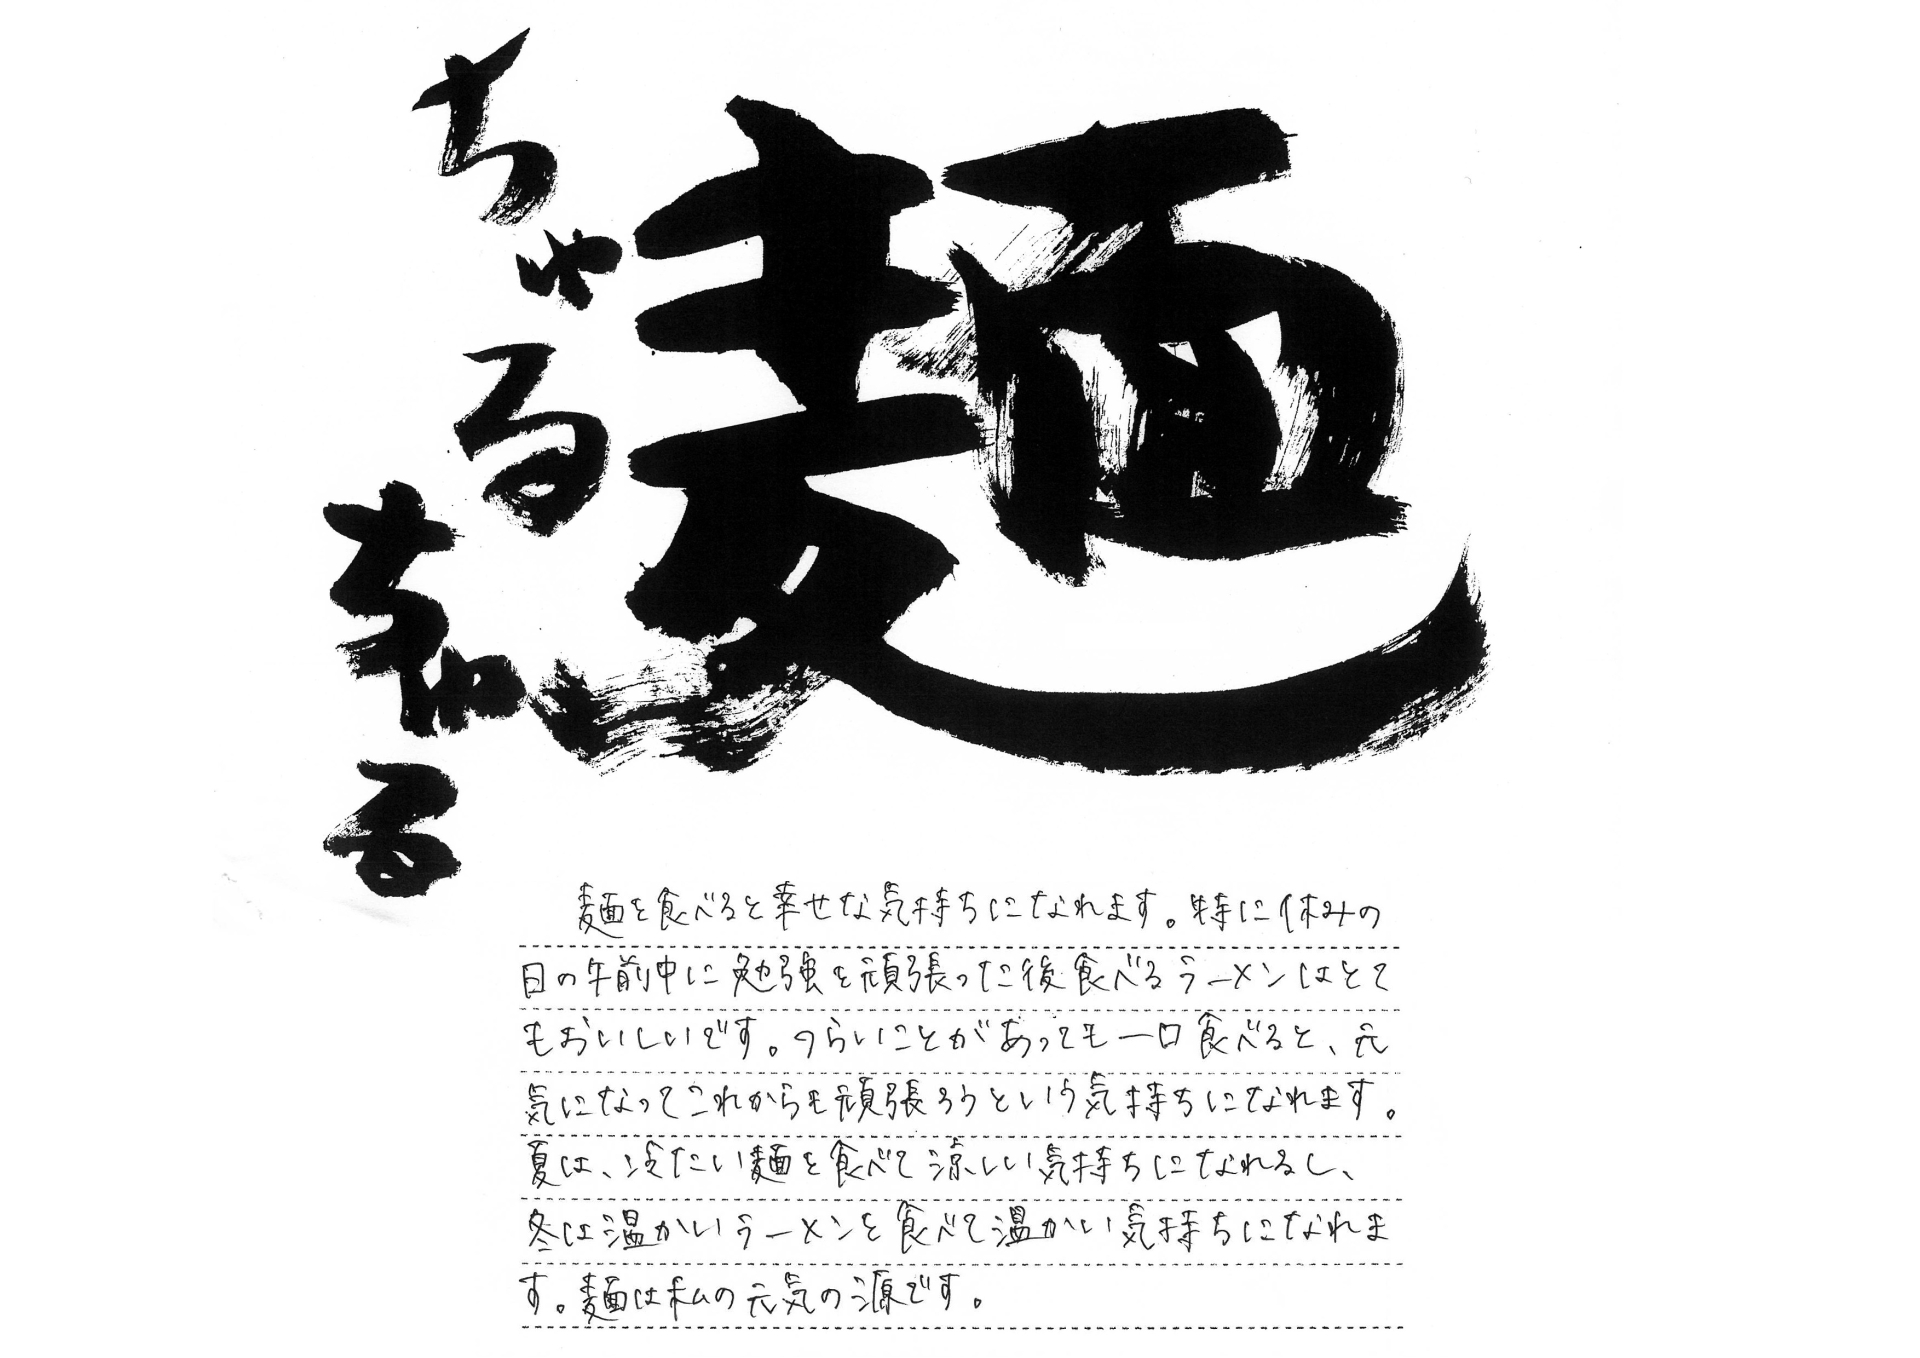 麺
ちゅる
ちゅる
麺を食べると幸せな気持ちになれます。特に休みの
日の午前中に勉強を頑張った後食べるラーメンはとて
もおいしいです。つらいことがあっても一口食べると、元
気になってこれからも頑張ろうという気持ちになれます。
夏は、冷たい麺を食べて涼しい気持ちになれるし、
冬は温かいラーメンを食べて温かい気持ちになれま
す。麺は私の元気の源です。